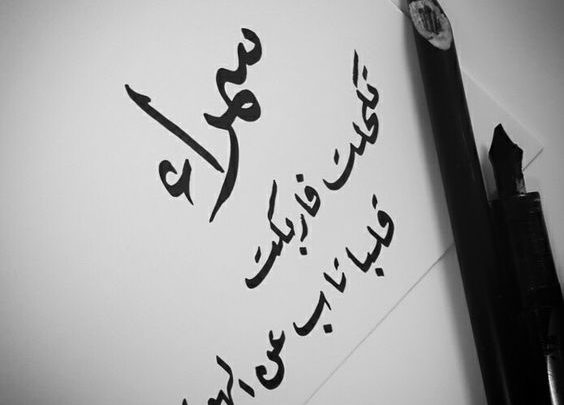 سمراء
تكحلت فاربكت
قلبا تاب عن الهو